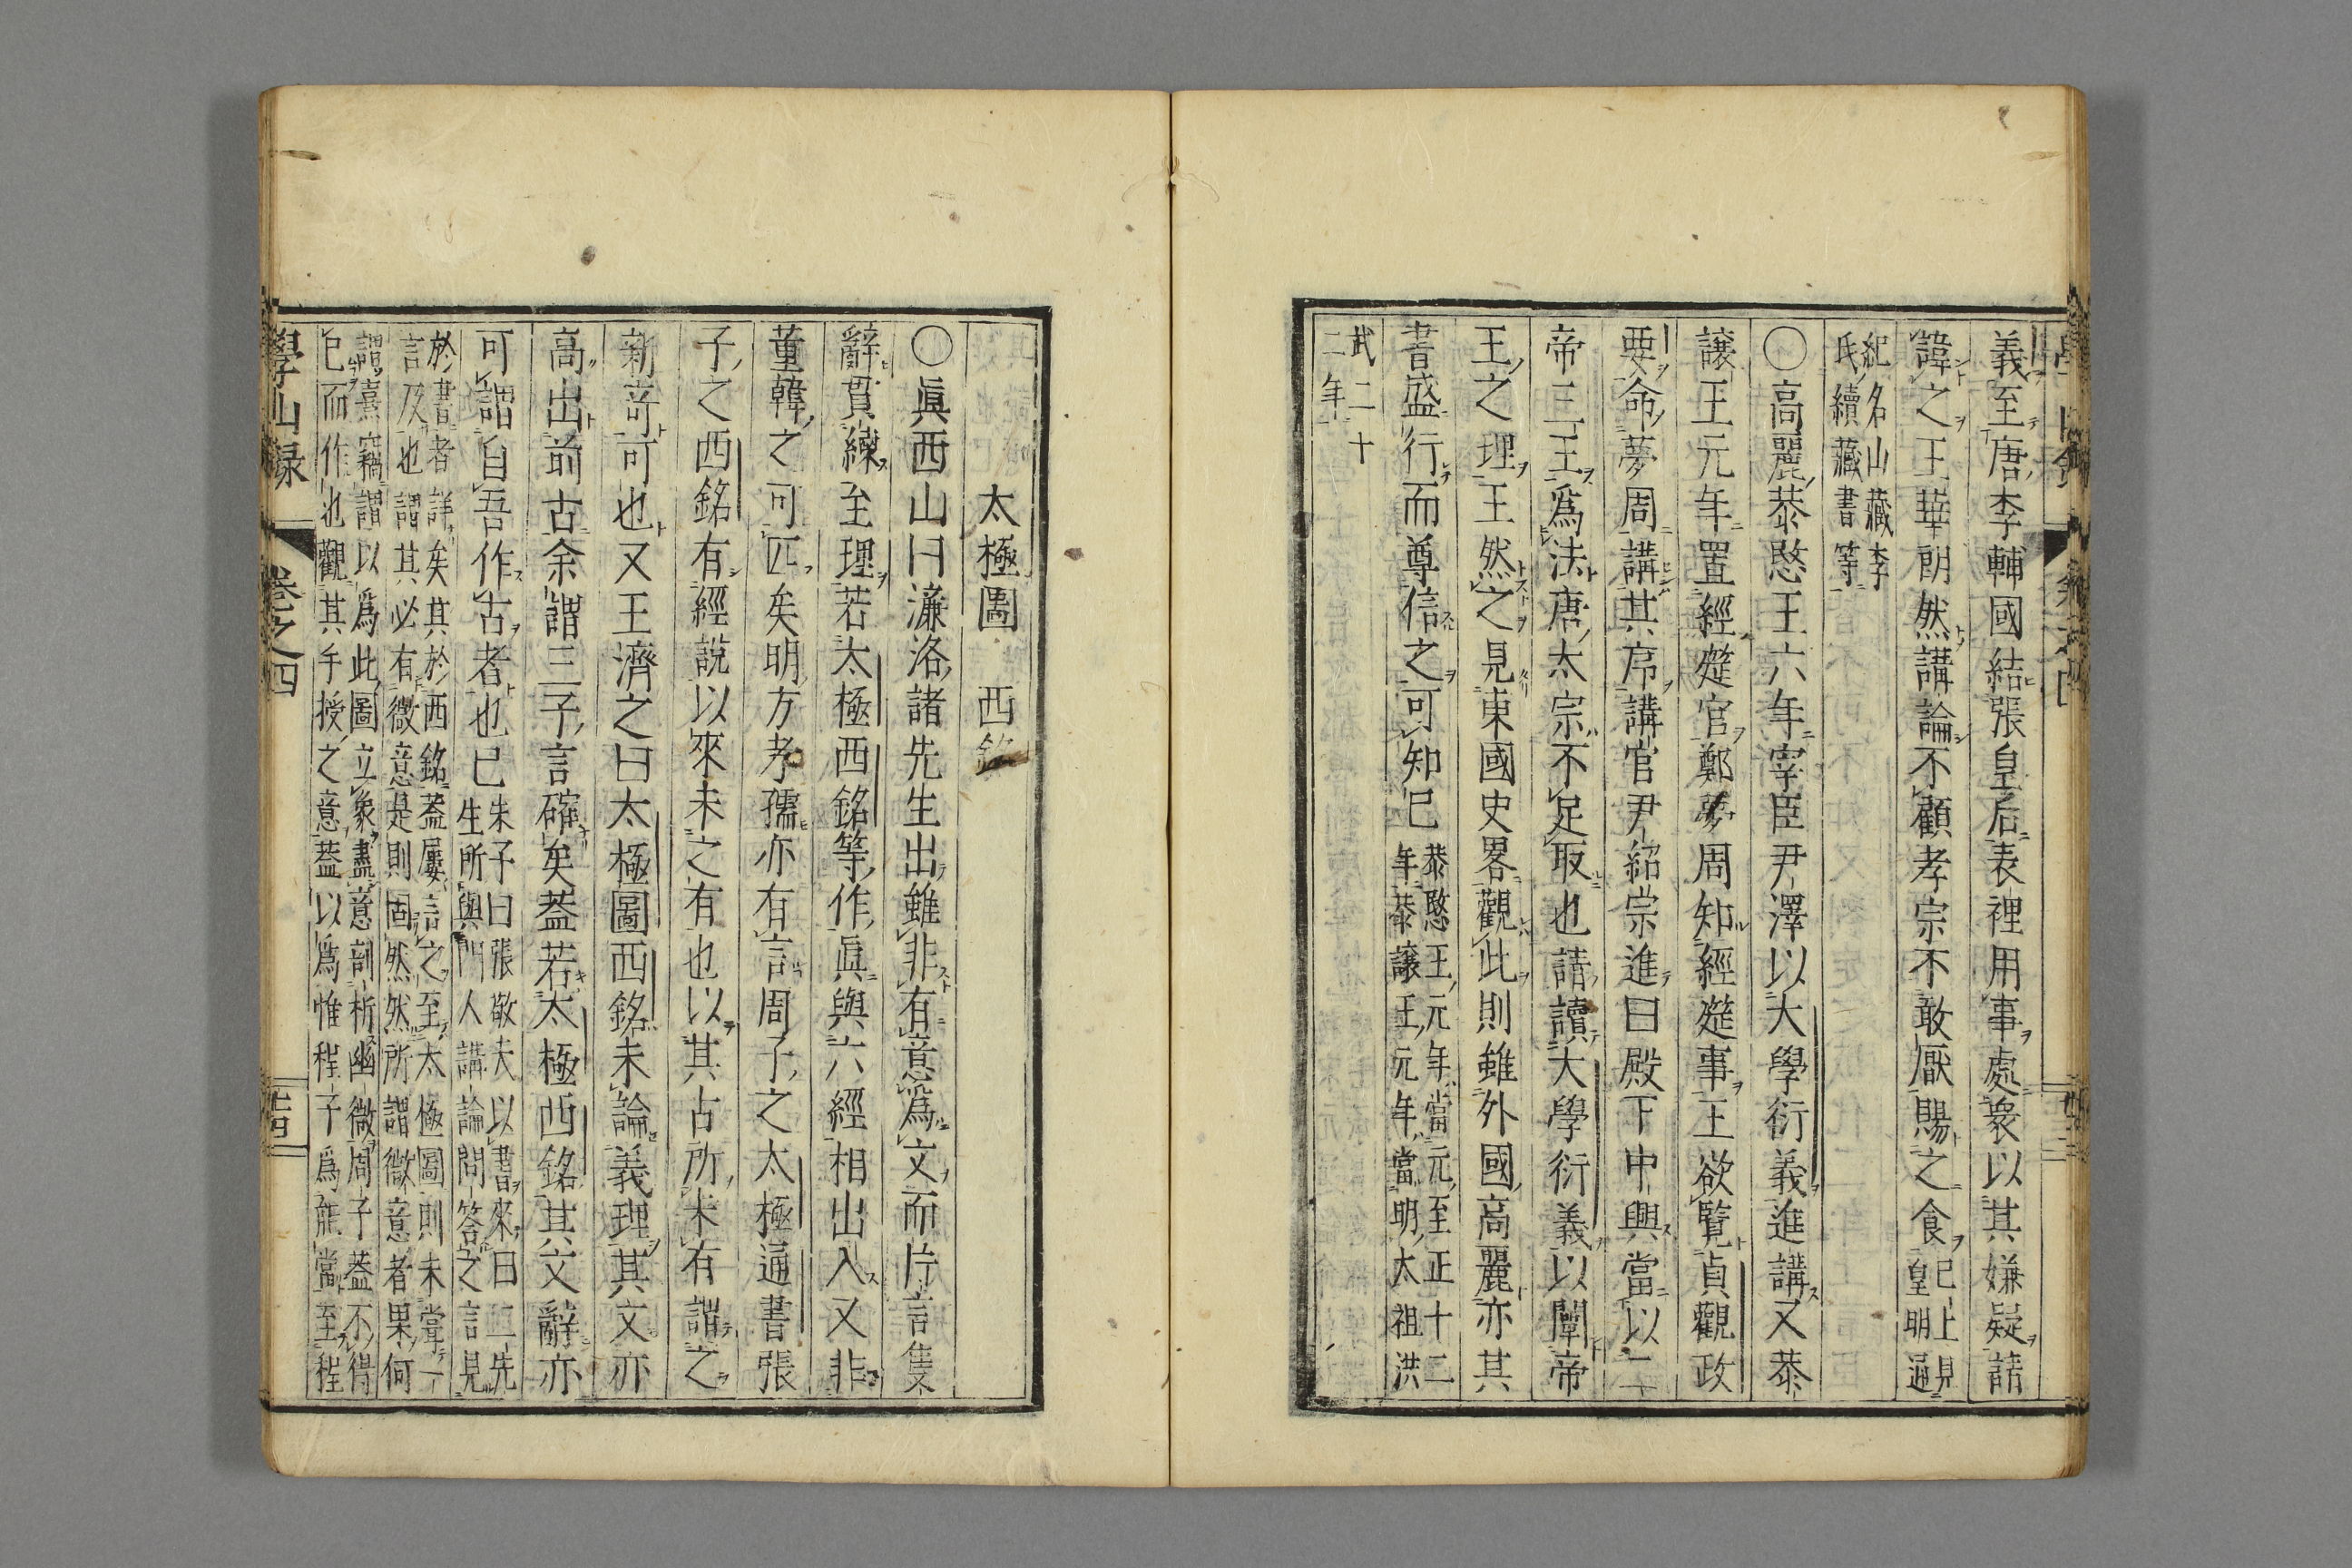 義至唐李輔國結張皇后表裡用事處衆以其嫌疑請
諱之王華朗然講論不顧孝宗不敢厭賜之食已上見皇明通
紀名山藏李氏續藏書等
〇高麗恭愍王六年宰臣尹澤以大學衍義進講又恭
讓王元年置經筵官鄭夢周知經筵事王欲覽貞觀政
要命夢周講其序講官尹紹宗進曰殿下中興當以二
帝三王爲法唐太宗不足取也請讀大學衍義以闡帝
王之理王然之見東國史畧觀此則雖外國高麗亦其
書盛行而尊信之可知已恭愍王元年當元至正十二年恭讓王元年當明太祖洪
武二十二年
太極圖 西銘
〇眞西山曰濂洛諸先生出雖非有意爲文而片言隻
辭貫綜至理若太極西銘等作眞與六經相出入又非
董韓之可匹矣明方孝孺亦有言周子之太極通書張
子之西銘有經說以來未之有也以其占所未有謂之
新奇可也又王濟之曰太極圖西銘未論義理其文亦
高出前古余謂三子言確矣葢若太極西銘其文辭亦
可謂自吾作古者也已朱子曰張敬夫以書來曰二先生所與門人講論問答之言見
於書者詳矣其於西銘葢屢言之至太極圖則未嘗一言及也謂其必有微意是則固然然所謂微意者果何
謂熹竊謂以爲此圖立象盡意剖析幽微周子葢不得已而作也觀其手授之意葢以爲惟程子爲能當至程
學山錄 卷之四 二十四